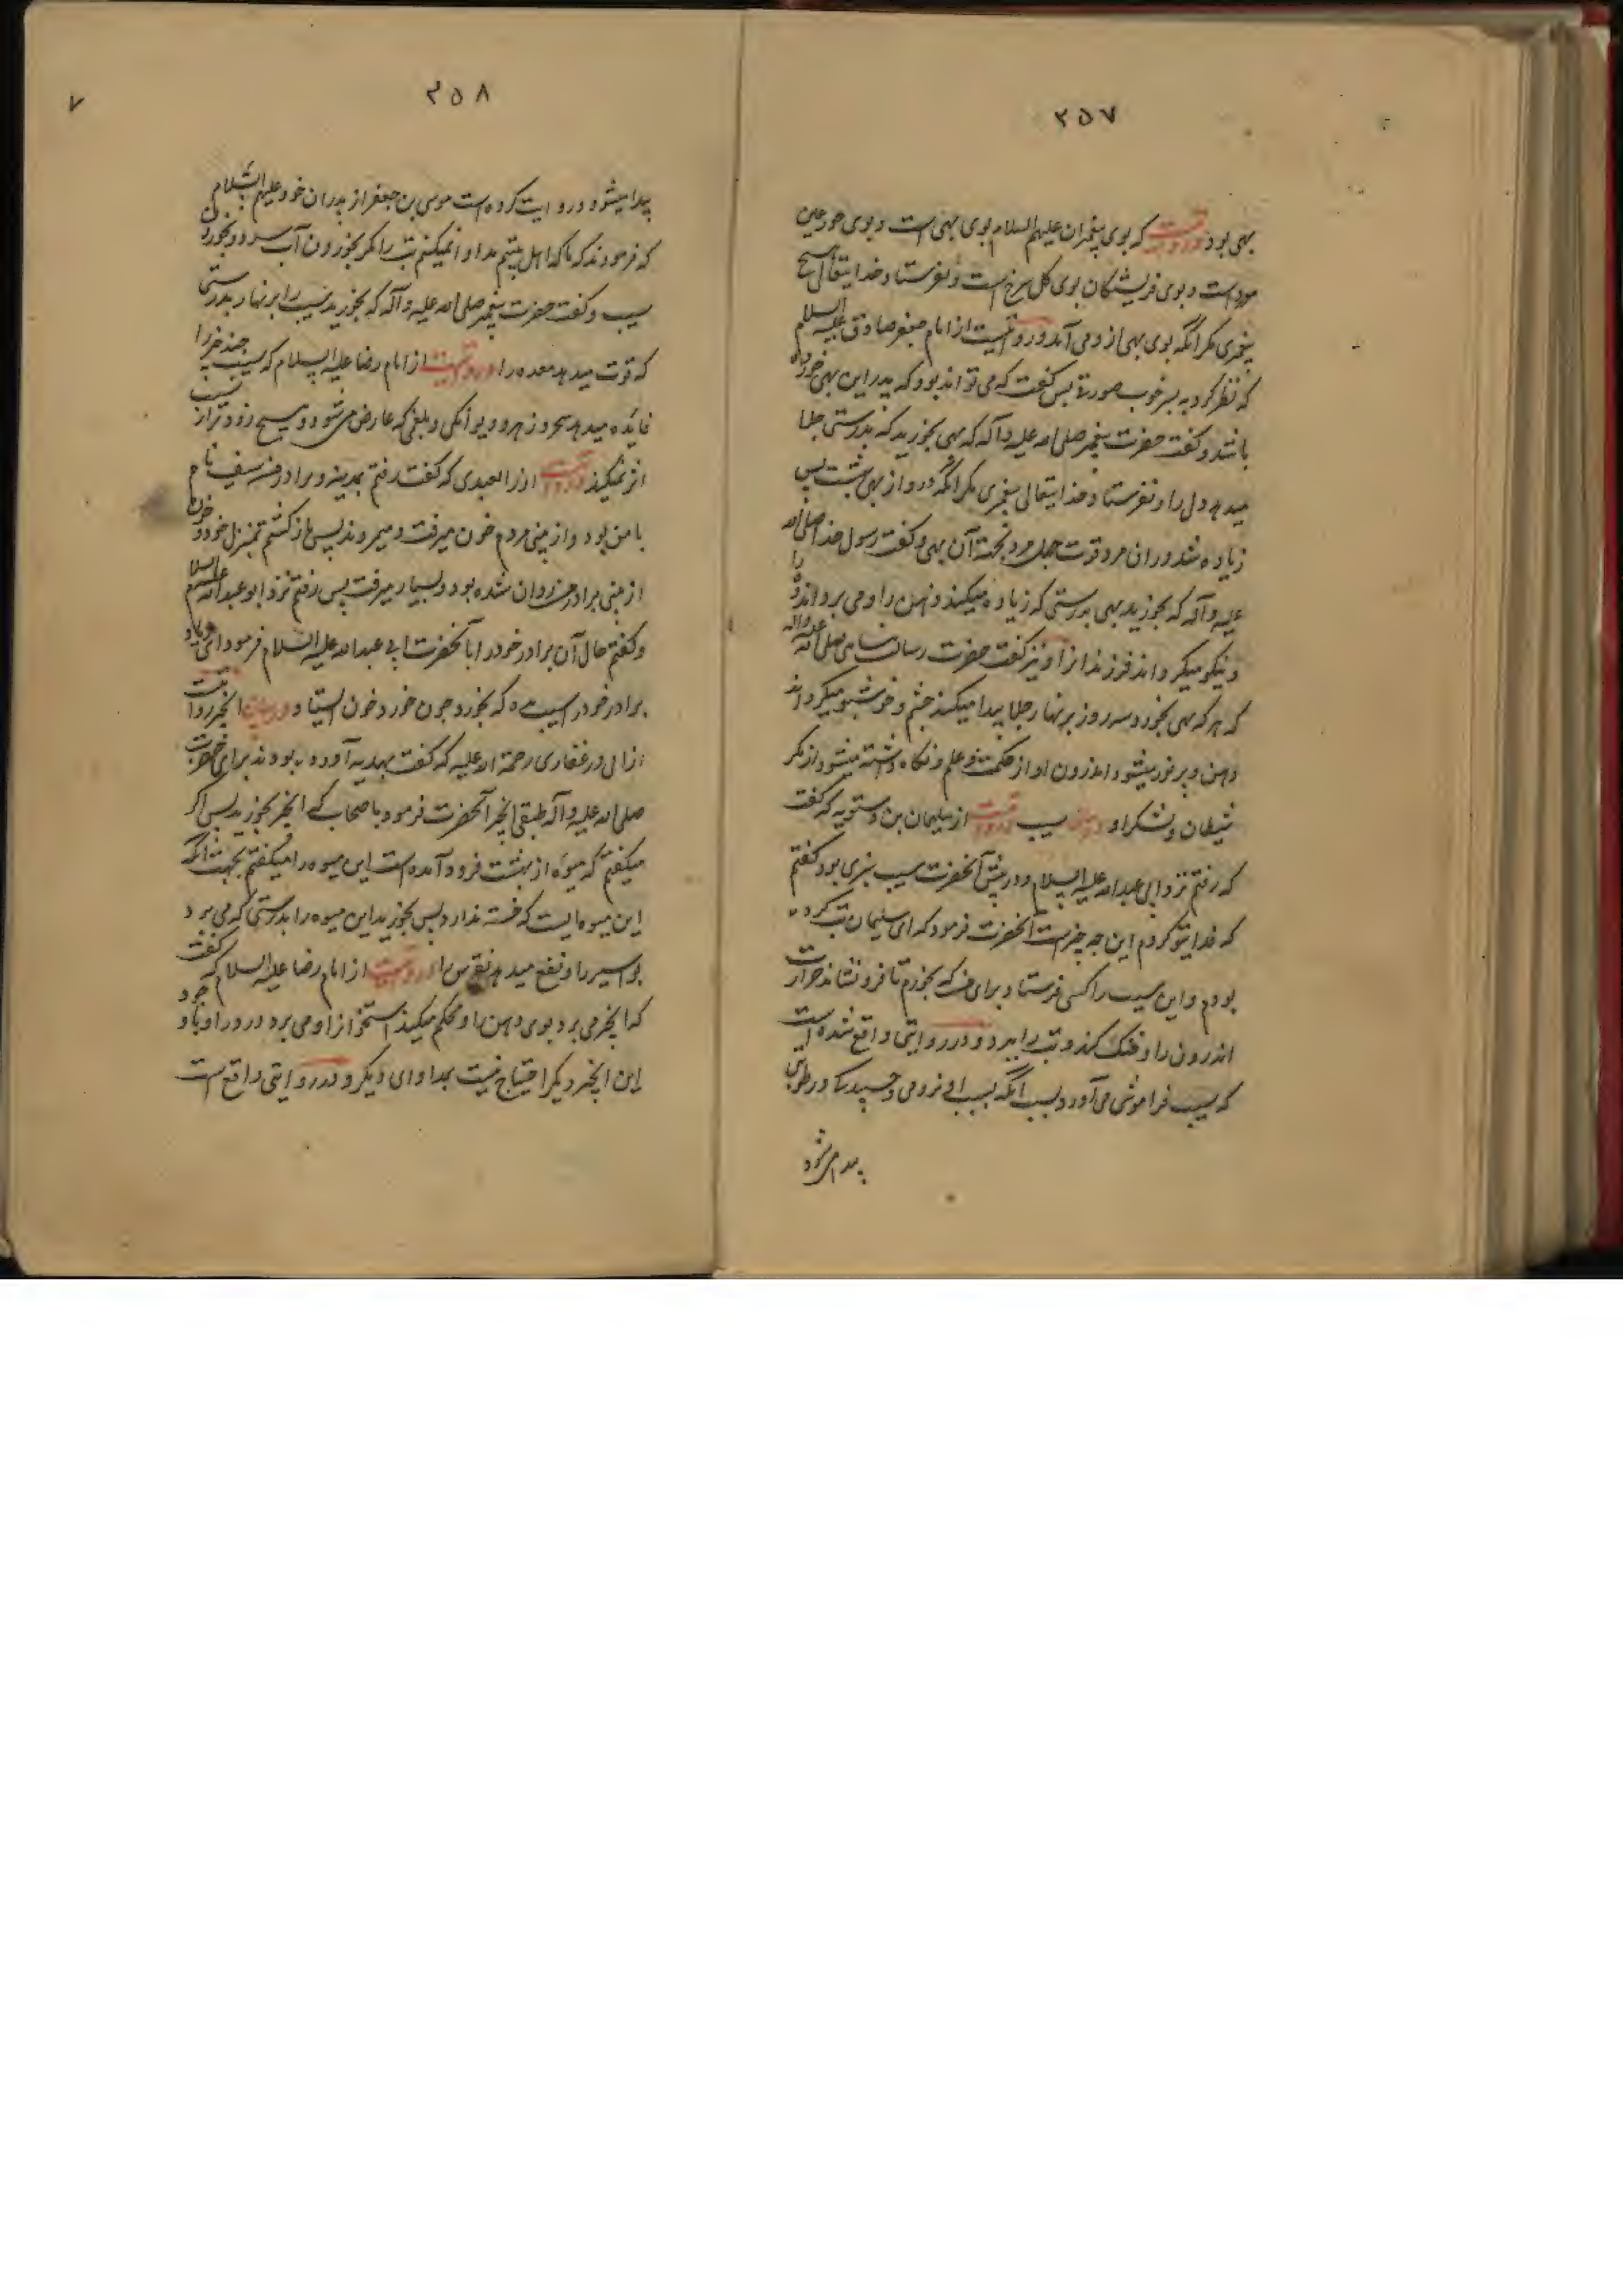 ٢٥٧
بهی بود و روایتست که بوی پیغمبران علیهم السلام بوی بهی است و بوی حور عین
مورد است و بوی فریشتکان بوی کل سرخ است و نفرستاد خدایتعالی هیچ
پیغمبری مکر آنکه بوی بهی از و می آمد و روایتست از امام جعفر صادق علیه السلام
که نظر کرد به پسر خوب صورتی پس کفت که می تواند بود که پدر این بهی خورده
باشد و کفت حضرت پیغمبر صلی الله علیه و آله که بهی بخورید که بدرستی جلا
میدهد دل را و نفرستاد خدایتعالی پیغمبری مکر آنکه در و از بهی بهشت پس
زیاده شد در ان مرد قوت چهل مرد بجهة آن بهی و کفت رسول خدا صلی الله
علیه و آله که بخورید بهی بدرستی که زیاده میکند ذهن را و می برد اندوه را
و نیکو میکرداند فرزند را و نیز کفت حضرت رسالت صلی الله علیه واله
که هر که بهی بخورد سه روز بر نهار جلا پیدا میکند چشم و خوشبو میکرداند
دهن و پر نور میشود اندرون او از حکمت و علم و نکاه داشته میشود از مکر
شیطان و لشکر او در بیان سیب و روایتست از سلیمان بن دستویه که کفت
که رفتم نزد ابی عبدالله علیه السلام و در پیش آنحضرت سیب سبزی بود کفتم
که فدایتو کردم این چه چیز است آنحضرت فرمود که ای سلیمان تب کرده
بودم و این سیب را کسی فرستاد برای من که بخورم تا فرو نشاند حرارت
اندرون را و خنک کند و تب را ببرد و در روایتی واقع شده است
که سیب فراموشی می آورد بسبب آنکه بسبب او لزوجی و چسپیدکی در رطوبتی
پیدا می شود
٢٥٨
٧
پیدا میشود و روایت کرده است موسی بن جعفر از پدران خود علیهم السلام
که فرمودند که ما که اهل بیتیم مداوا نمیکنیم تب را مکر بخوردن آب سرد و بخوردن
سیب و کفت حضرت پیغمبر صلی الله علیه و آله که بخورید سیب را بر نهار بدرستی
که قوت میدهد معده را و روایتست از امام رضا علیه السلام که سیب چند چیز را
فایده میدهد سحر و زهر و دیوانکی و بلغمی که عارض می شود و هیچ زودتر از سیب
اثر نمیکند و روایتست از زرالعبدی که کفت رفتم بمدینه و برادر من سیف نام
با من بود و از بینی مردم خون میرفت و میمردند پس باز کشتم بمنزل خود و خون
از بینی برادرم روان شده بود و بسیار میرفت پس رفتم نزد ابو عبدالله علیه السلام
و کفتم حال آن برادر خود را با آنحضرت ابی عبدالله علیه السلام فرمود ای زیاد
برادر خود را سیب ده که بخورد چون خورد خون ایستاد در بیان انجیر روایتست
از ابی ذر غفاری رحمة الله علیه که کفت بهدیه آورده بودند برای حضرت
صلی الله علیه و آله طبقی انجیر آنحضرت فرمود با صحاب که انجیر بخورید پس اکر
میکفتم که میوه از بهشت فرود آمده است این میوه را میکفتم بجهت آنکه
این میوه ایست که خسته ندارد پس بخورید این میوه را بدرستی که می برد
بواسیر را و نفع میدهد نقرس را و روایتست از امام رضا علیه السلام که کفت
که انجیر می برد بوی دهن را و محکم میکند استخوانرا و می برد درد را و با وجود
این انجیر دیکر احتیاج نیست بمداوای دیکر و در روایتی واقع است